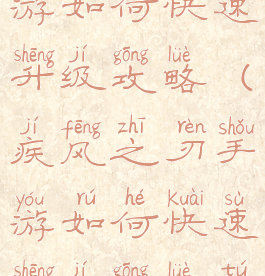 游如何快速
shēng jí gōng lüè
升级攻略（
jí fēng zhī rèn shǒu
疾风之刃手
yóu rú hé kuài sù
游如何快速
shēng jí gōng lüè tú